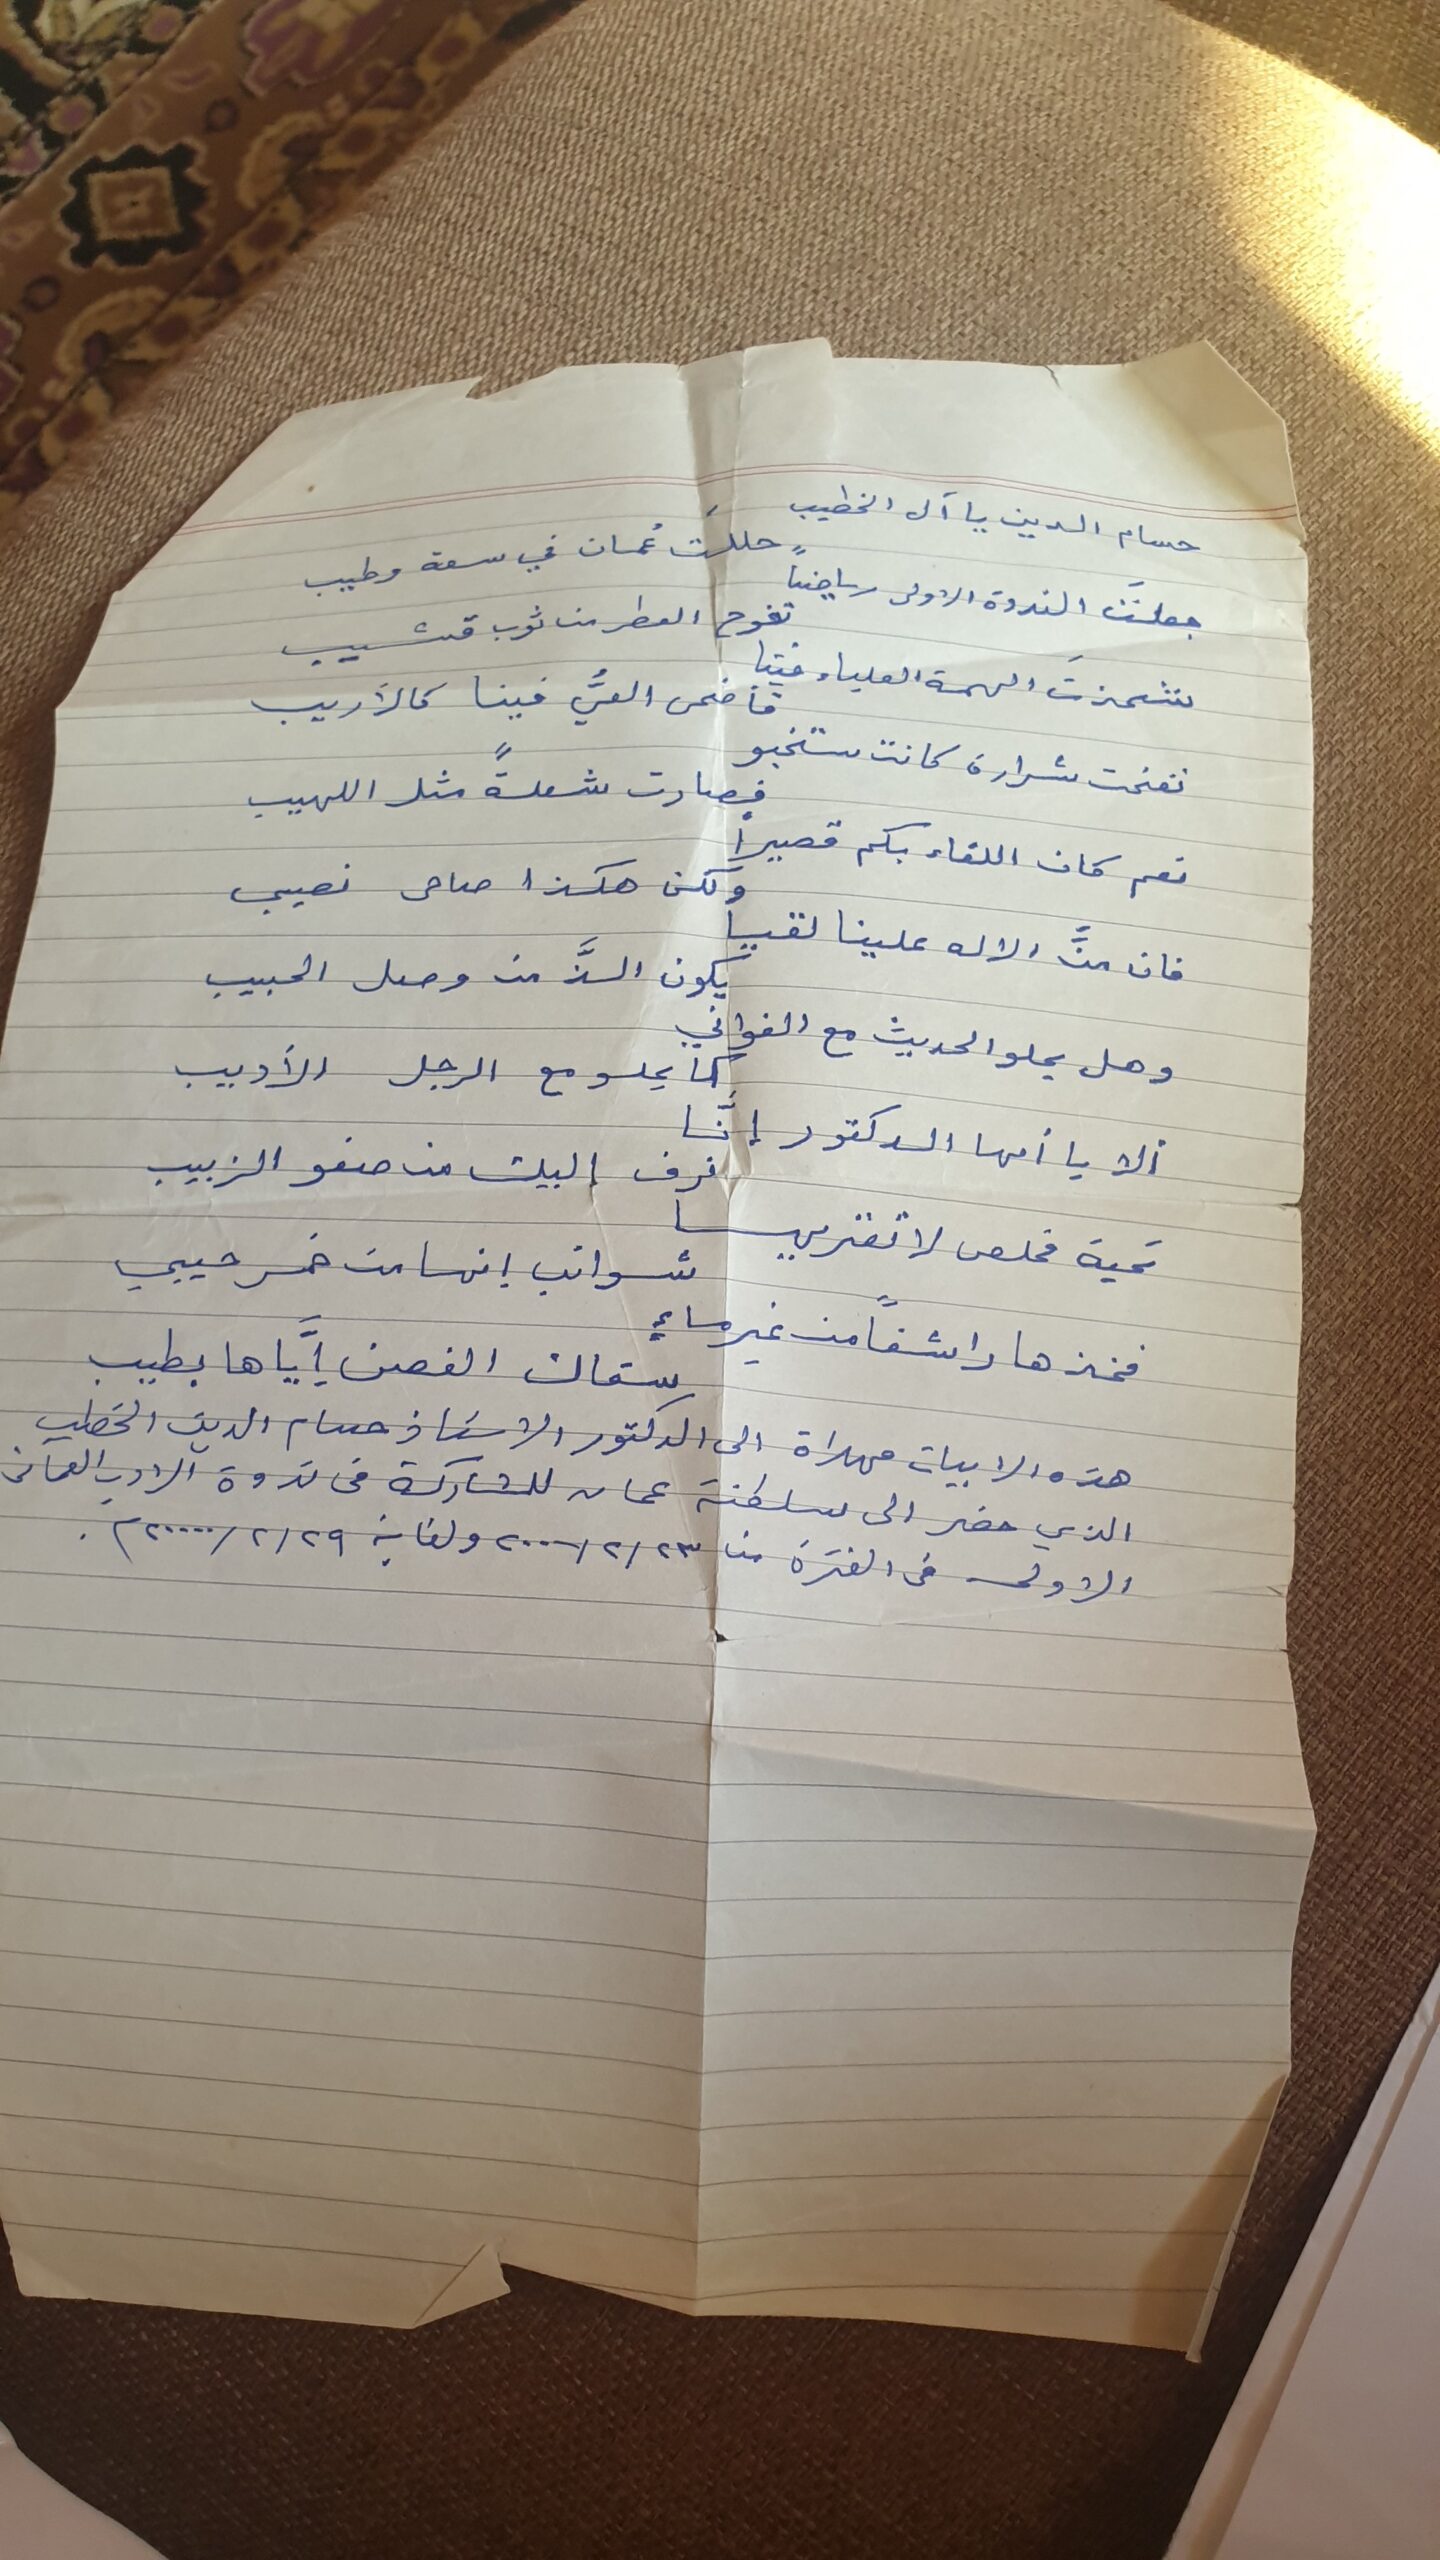 حسام الدين يا آل الخطيب
حللتَ عُمان في سعة وطيب
جعلتَ الندوة الاولى رياضاً
تفوح العطر من ثوب قشيب
شحذتَ الهمة العلياء فينا
فأضحى العيُّ فينا كالأريب
نفخت شرارة كانت ستخبو
فصارت شعلةً مثل اللهيب
نعم كان اللقاء بكم قصيراً
ولكن هكذا صاحى نصيبي
فان منَّ الاله علينا لقيا
يكون الذَّ من وصل الحبيب
وهل يحلو الحديث مع الغواني
كما يحلو مع الرجل الأديب
ألا يا أيها الدكتور إنَّا
نزف إليك من صفو الزبيب
تحية مخلص لا تعتريها
شوائب إنها من خمر جيبي
فخذها راشفاً من غير ماءٍ
سقاك الغصن إيَّاها بطيب
هذه الابيات مهداة الى الدكتور الاستاذ حسام الدين الخطيب
الذي حضر الى سلطنة عمان للمشاركة في ندوة الادب العماني
الاولى في الفترة من ٢٠٠٠/٢/٢٣ ولغاية ٢٠٠٠٠/٢/٢٩م.